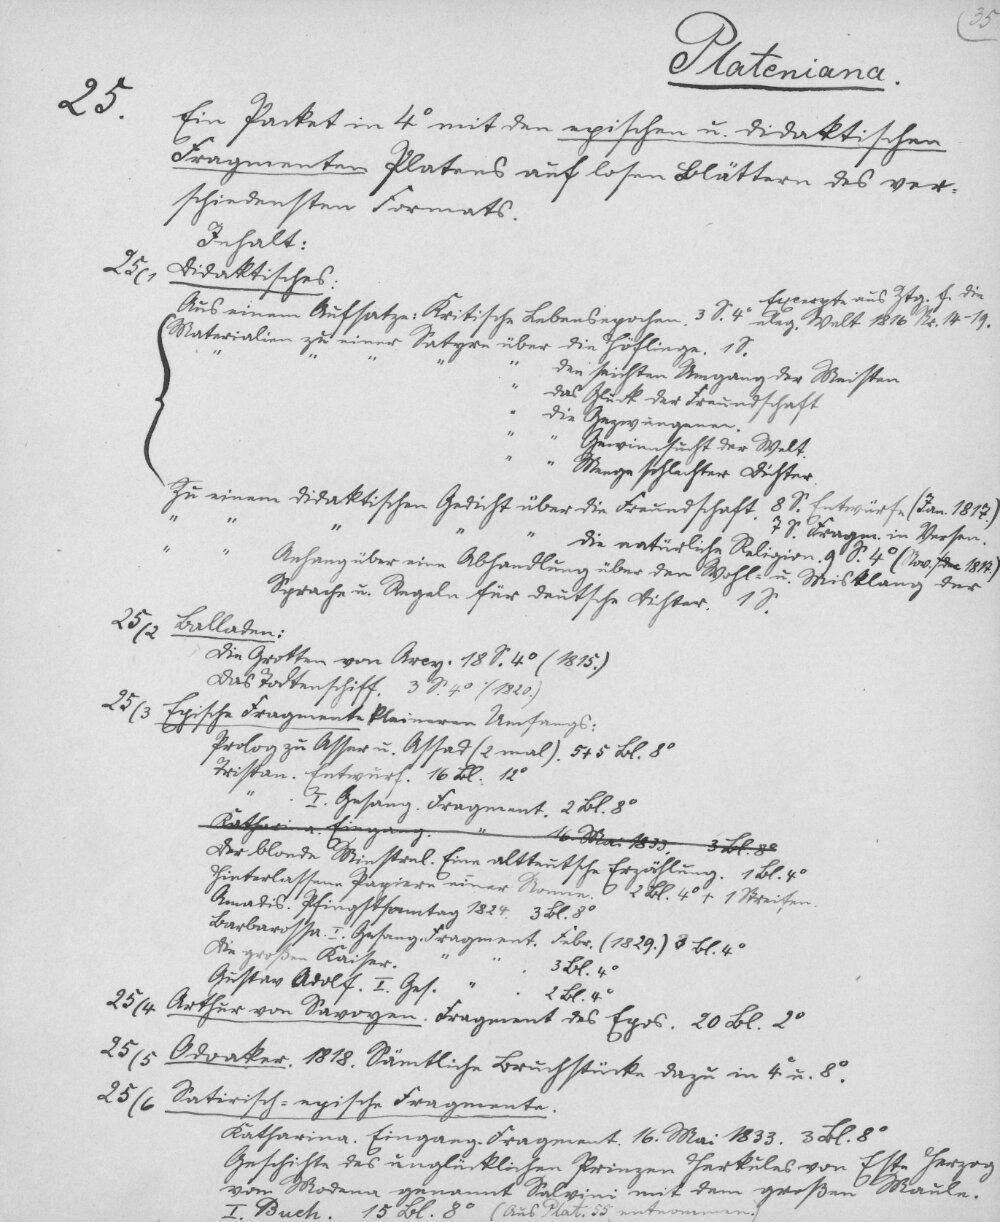 (35
Plateniana.
25. Ein Packet in 4° mit den epischen u. didaktischen
Fragmenten Platens auf losen Blättern des ver-
schiedensten Formats.
Inhalt:
25/1 Didaktisches:
Aus einem Aufsatze: Kritische Lebensepochen. 3 S. 4° Excerpte aus Ztg. f. die
eleg. Welt 1816 Nr. 14-19.
Materialien zu einer Satyre über die Höflinge. 1 S.
" " " " " den seichten Umgang der Meisten
" das Glück der Freundschaft
" die Gezwungenen.
" " Gewinnsucht der Welt.
" " Menge schlechter Dichter.
Zu einem didaktischen Gedicht über die Freundschaft. 8 S. Entwürfe (Jan. 1817.)
7 S. Fragm. in Versen.
" " " " " die natürliche Religion. 9 S. 4° (Nov./Dec 1817.)
" " Anhang über eine Abhandlung über den Wohl- u. Misklang der
Sprache u. Regeln für deutsche Dichter. 1 S.
25/2 Balladen:
Die Grotten von Arcy. 18 S. 4° (1815.)
Das Todtenschiff. 3 S. 4° (1820.)
25/3 Epische Fragmente kleineren Umfangs:
Prolog zu Asser u. Assad (2 mal). 5+5 Bl. 8°
Tristan. Entwurf. 16 Bl. 12°
" . I. Gesang. Fragment. 2 Bl. 8°
Katharina. Eingang. " 16. Mai 1833. 3 Bl. 8°
Der blonde Minstrel. Eine altteutsche Erzählung. 1 Bl. 4°
Hinterlassene Papiere einer Nonne. 2 Bl. 4° + 1 Streifen.
Amadis. Pfingstsonntag 1824. 3 Bl. 8°
Barbarossa. I. Gesang. Fragment. Febr. (1829.) 3 Bl. 4°
Die großen Kaiser. " " . 3 Bl. 4°
Gustav Adolf. I. Ges. " . 2 Bl. 4°
25/4 Arthur von Savoyen. Fragment des Epos. 20 Bl. 2°
25/5 Odoaker. 1818. Sämtliche Bruchstücke dazu in 4° u. 8°.
25/6 Satirisch-epische Fragmente.
Katharina. Eingang. Fragment. 16. Mai 1833. 3 Bl. 8°
Geschichte des unglücklichen Prinzen Herkules von Este Herzog
von Modena genannt Salvini mit dem großen Maule.
I. Buch. 15 Bl. 8° (Aus Plat. 55 entnommen.)